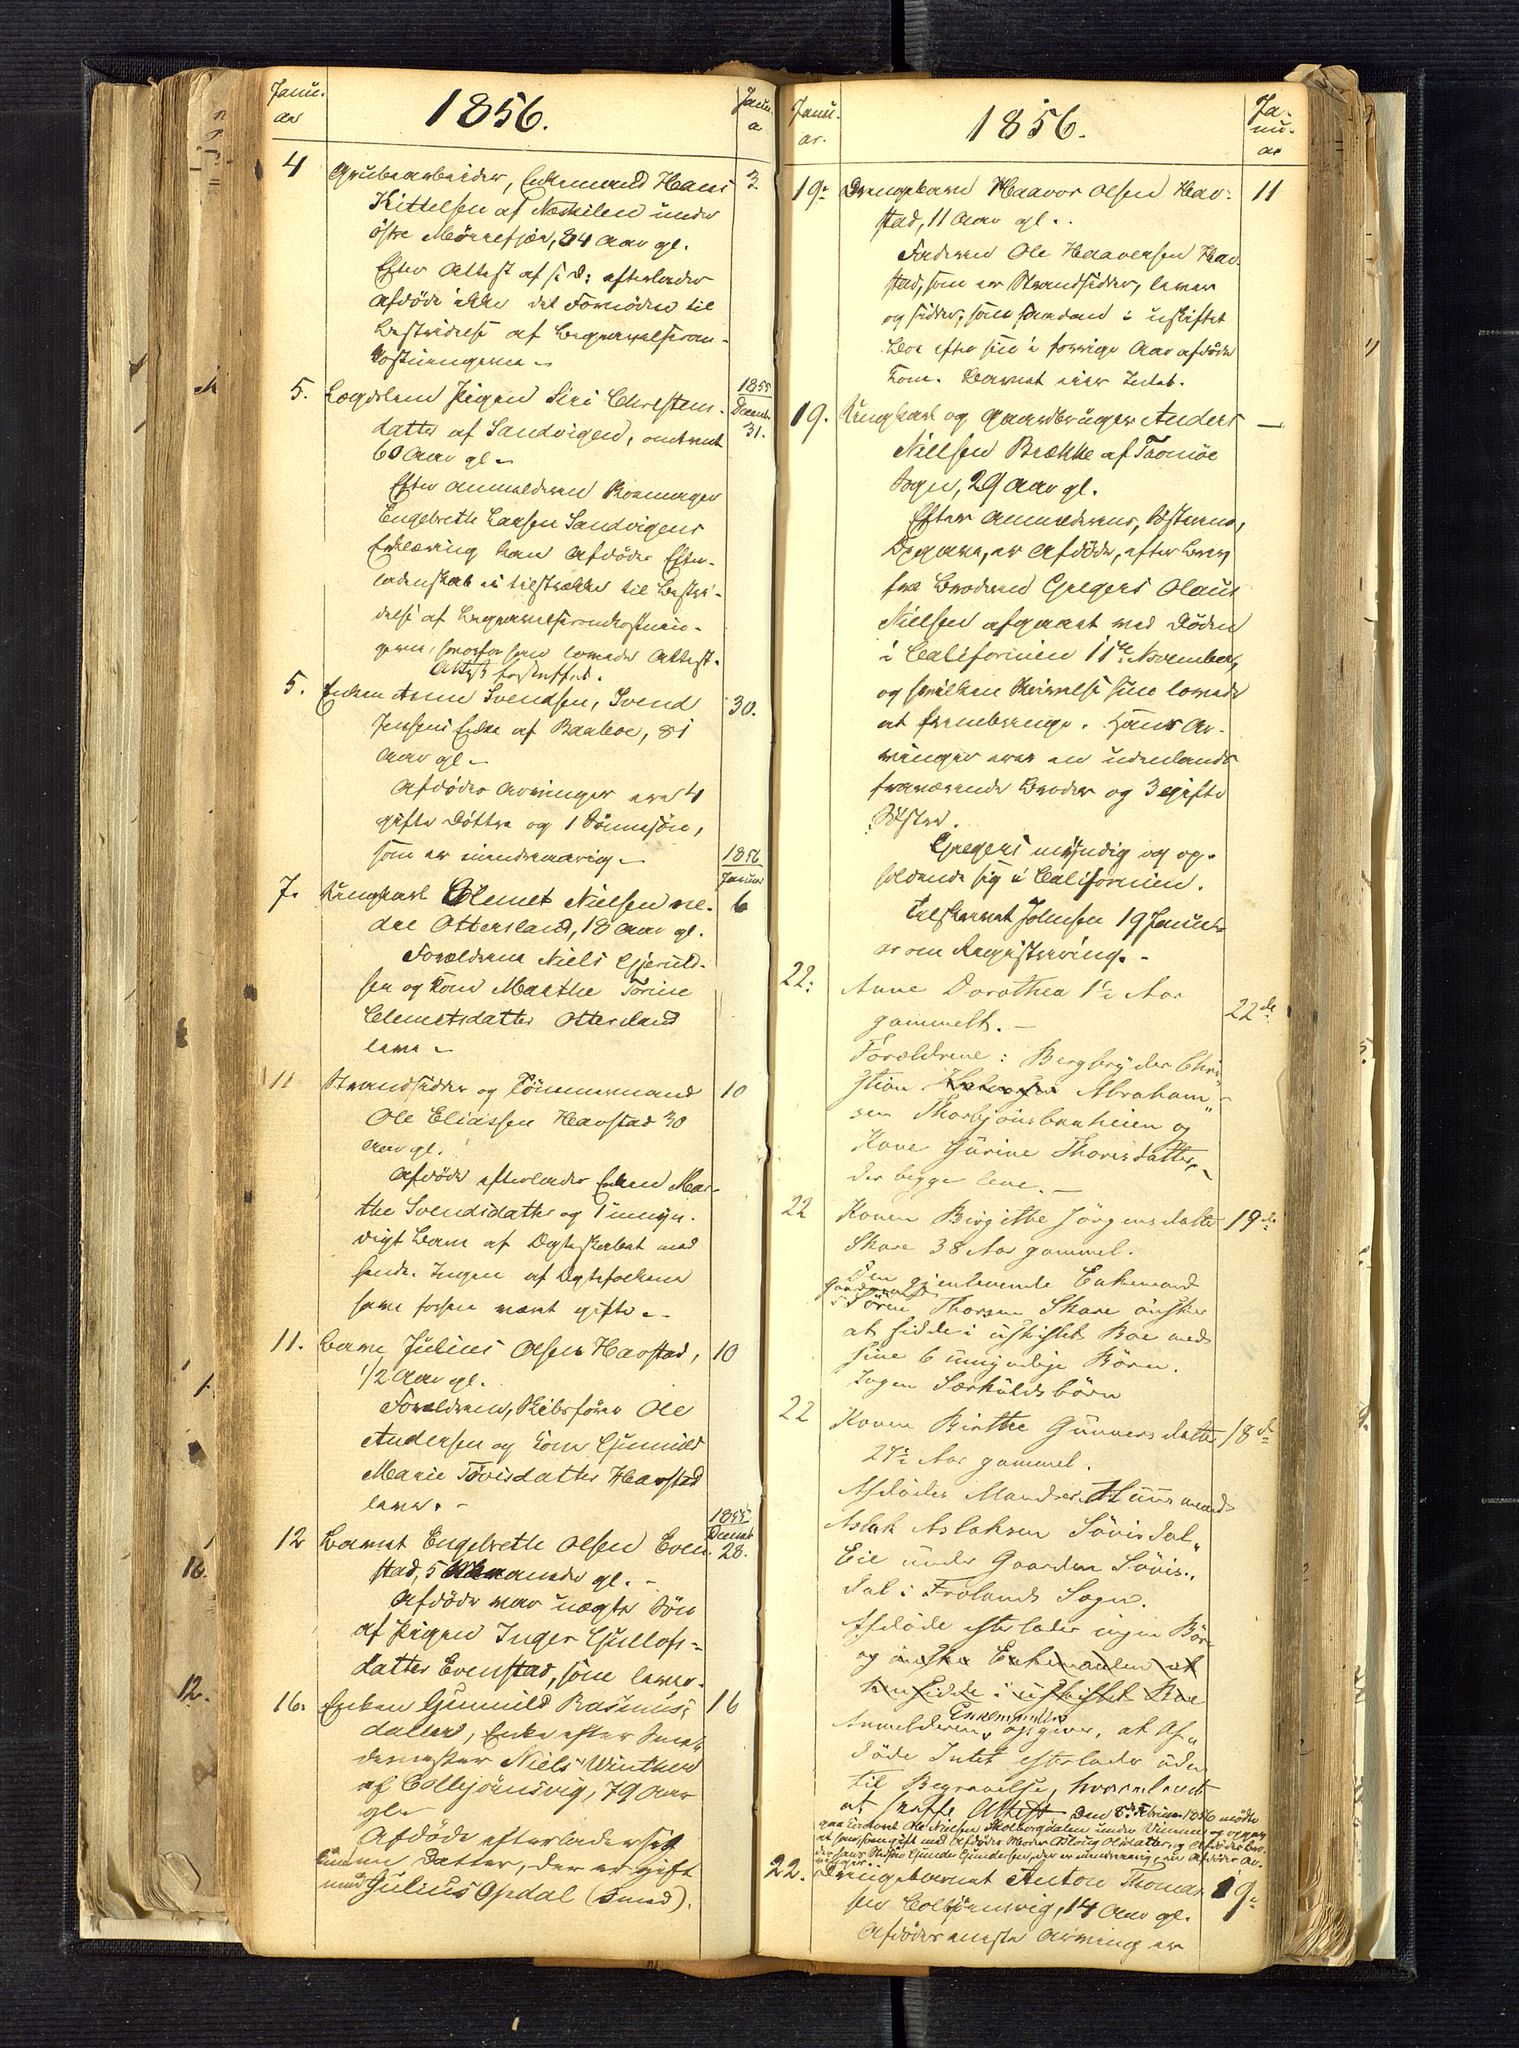 Janu-
ar
1856.
Janu-
ar
4
Grubearbeider, Enkemand Hans
3.
Kittelsen af Neskilen under
østre Mørefjær, 84 Aar gl.
Efter Attest af s. D. efterlader
Afdøde ikke det Fornødne til
Bestridelse af Begravelsesom-
kostningerne.-
5.
Lægdslem Pigen Siri Christens-
1855
Decemb.
31.
datter af Sandvigen, omtrent
60 Aar gl.-
Efter Anmelderen
Engebreth Larsen Sandvigens
Erklæring kan Afdødes Efter-
ladenskab ei tilstrække til Bestri-
delse af Begravelsesomkostnin-
gerne, hvorfor han lovede Attest.
Attest forskaffet.
5.
Enken Anne Svendsen, Svend
30.
Jensens Enke af Baaboe, 81
Aar gl.-
Afdødes Arvinger ere 4
gifte Døttre og 1 Sønnesøn,
som er mindreaarig.-
1856
Januar
7.
Ungkarl Clemet Nielsen ne-
6
dre Ottersland, 18 Aar gl.
Forældrene Niels Gjeruld-
sen og Kone Marthe Torine
Clemetsdatter Ottersland
leve.-
11
Strandsidder og Tømmermand
10
Ole Eliassen Havstad 30
Aar gl.
Afdøde efterlader Enken Mar-
the Svendsdatter og 1 umyn-
digt Barn af Ægteskabet med
hende. Ingen af Ægtefolkene
have forhen været gifte.-
11.
Barn Julius Olsen Havstad,
10
1/2 Aar gl.
Forældrene, Skibsfører Ole
Andersen og Kone Gunnild
Marie Tovisdatter Havstad
lever.-
1855
Decemb.
12
Barnet Engebreth Olsen Even-
28.
stad, 5 Maaneder gl.-
Afdøde var uægte Søn
af Pigen Inger Gullofs-
datter Evenstad, som lever.
16.
Enken Gunnild Rasmus-
16
datter, Enke efter
Niels Winther
af Colbjørnsvig, 79 Aar
gl.-
Afdøde efterlader sig
Datter, der er gift
med Julius Opdal (Smed).
Janu-
ar.
1856.
Ja-
nu-
ar
19.
Drengebarn Haavor Olsen Hav-
11
stad, 11 Aar gl.
Faderen Ole Haavorsen Hav-
stad, som er Strandsidder, lever
og sidder, som saadan i uskiftet
Boe efter sin i forrige Aar afdøde
Kone. Barnet eier Intet.
19.
Ungkarl og Gaardbruger Anders
—
Nielsen Brække af Tromøe
Sogn, 29 Aar gl.
Efter Anmelderens, Søsterens,
Opgave, er Afdøde, efter Brev
fra Broderen Gregers Olaus
Nielsen afgaaet ved Døden
i Californien 11te November,
og hvilken Skrivelse hun lovede
at frembringe. Hans Ar-
vinger ere en udenlands
fraværende Broder og 3 gifte
Søstre.
Gregers myndig og op-
holdende sig i Californien.
Tilskrevet Johnsen 19 Janu-
ar om Registrering.-
22.
Anne Dorothea 1½ Aar
22de
gammelt.-
Forældrene: Bergbryder Chri-
stian Abraham-
sen Thorbjønsbuheien og
Kone Gurine Thorisdatter,
der begge leve.-
22
Konen Birgithe Jørgensdatter
19de
Skare 38 Aar gammel.
Den gjenlevende Enkemand
Gaardmand
Søren Thorsen Skare ønsker
at sidde i uskiftet Boe med
sine 6 umyndige Børn.
Ingen Særkuldsbørn
22
Konen Birthe Gunnersdatter
18de
27½ Aar gammel.
Afdødes Mand er Huusmand
Aslak Aslaksen Søvisdal
Eie under Gaarden Søvis-
dal i Frolands Sogn.
Afdøde efterlader ingen Børn
og ønsker Enkemanden at
sidde i uskiftet Boe
Enkemanden
Anmelderen opgiver, at Af-
døde Intet efterlader uden
til Begravelse, hvorom lovet
at skaffe Attest Den 8de Februar 1856 mødte
Ole Nielsen under
at han, som gift med Afdødes Moder Aslaug Olsdatter, og Afdødes Bro-
der Gunde Gundersen, der er mindreaarig, er Afdødes Ar-
vinger.
22.
Drengebarnet Anton Thomas-
19.
sen Colbjørnsvig, 14 Aar gl.
Afdødes eneste Arving er